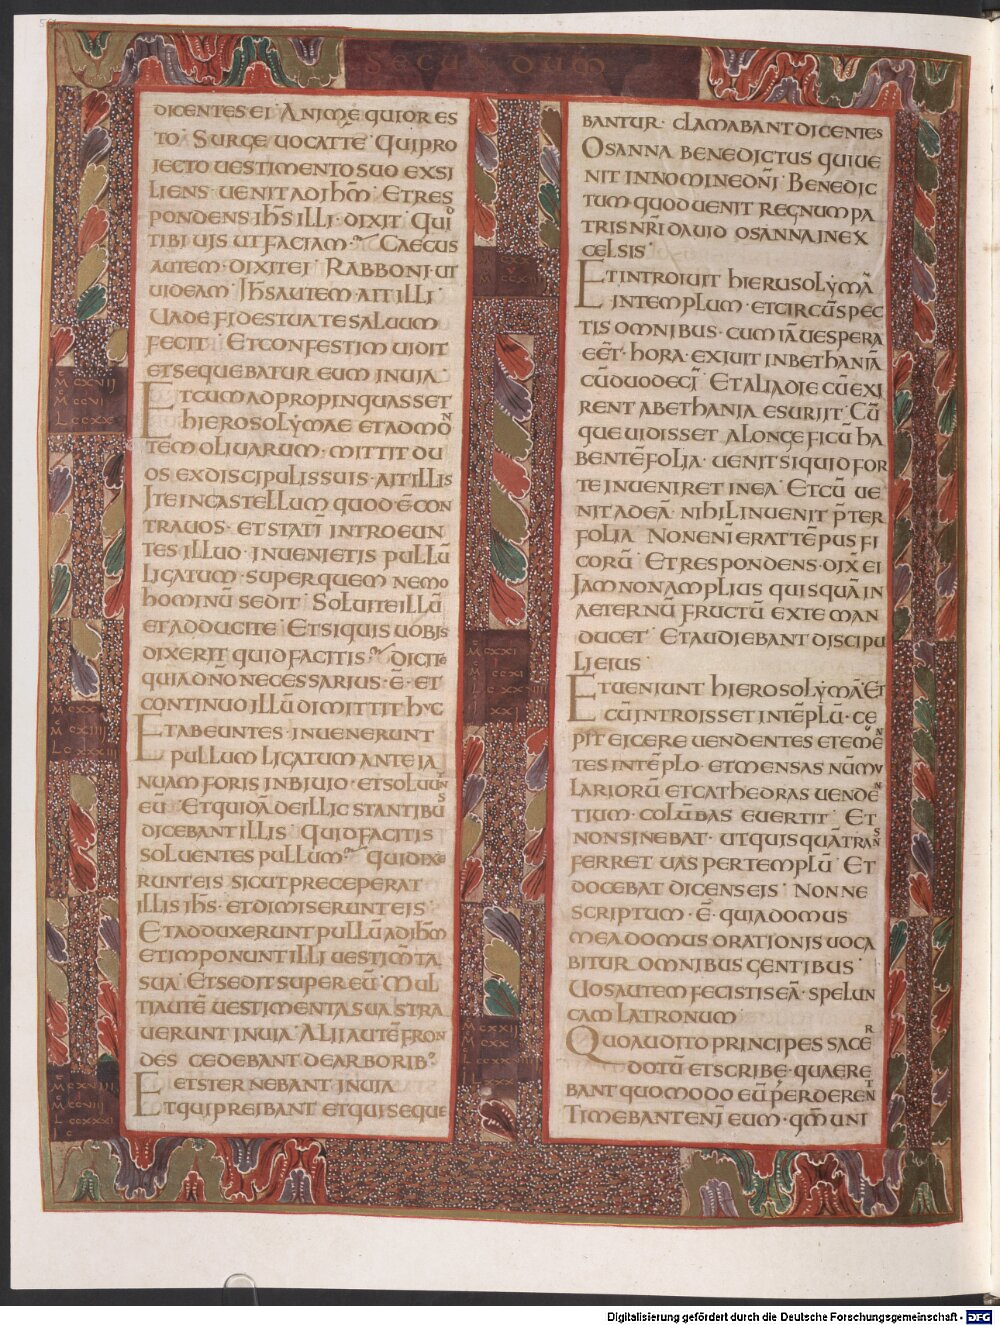 SECUNDUM
DICENTES EI · ANIMĘ QUIOR ES
TO · SURGE UOCAT TE · QUI PRO
IECTO UESTIMENTO SUO EXSI
LIENS · UENIT AD IHM̄ · ET RES
PONDENS · IHS̄ ILLI · DIXIT · QUID
TIBI UIS UT FACIAM · CAECUS
AUTEM · DIXIT EI · RABBONI · UT
UIDEAM · IHS̄ AUTEM · AIT ILLI ·
UADE FIDES TUA TE SALUUM
FECIT · ET CONFESTIM UIDIT
ET SEQUEBATUR EUM IN UIA ·
ET CUM ADPROPINQUASSET
HIEROSOLYMAE ET AD MON
TEM OLIUARUM · MITTIT DU
OS EX DISCIPULIS SUIS · AIT ILLIS
ITE IN CASTELLUM QUOD Ē CON
TRA UOS · ET STATĪ INTROEUN
TES ILLUD · INUENIETIS PULLŪ
LIGATUM · SUPER QUEM NEMO
HOMINŪ SEDIT · SOLUITE ILLŪ
ET ADDUCITE · ET SI QUIS UOBIS
DIXERIT QUID FACITIS · DICITE
QUIA DNŌ NECESSARIUS · Ē · ET
CONTINUO ILLŪ DIMITTIT HUC
ET ABEUNTES · INUENERUNT
PULLUM LIGATUM ANTE IA
NUAM FORIS IN BIUIO · ET SOLUUNT
EŪ · ET QUIDĀ DE ILLIC STANTIBUS
DICEBANT ILLIS · QUID FACITIS
SOLUENTES PULLUM · QUI DIXE
RUNT EIS SICUT PRECEPERAT
ILLIS IHS̄ · ET DIMISERUNT EIS ·
ET ADDUXERUNT PULLŪ AD IHM̄
ET IMPONUNT ILLI UESTIM̄TA
SUA · ET SEDIT SUPER EŪ · MUL
TI AUTĒ UESTIMENTA SUA STRA
UERUNT IN UIA · ALII AUTĒ FRON
DES CEDEBANT DE ARBORIB·
ET STERNEBANT IN UIA
ET QUI PREIBANT ET QUI SEQUE
BANTUR · CLAMABANT DICENTES
OSANNA BENEDICTUS QUI UE
NIT IN NOMINE DNĪ · BENEDIC
TUM · QUOD UENIT REGNUM PA
TRIS NRĪ DAUID OSANNA IN EX
CELSIS ·
ET INTROIUIT HIERUSOLYMĀ
IN TEMPLUM · ET CIRCŪSPEC
TIS OMNIBUS · CUM IĀ UESPERA
EĒT · HORA · EXIUIT IN BETHANIĀ
CŪ DUODECĪ · ET ALIA DIE CŪ EXI
RENT A BETHANIA ESURIIT · CŪ
QUE UIDISSET A LONGE FICŪ HA
BENTĒ FOLIA · UENIT SI QUID FOR
TE INUENIRET IN EA · ET CŪ UE
NIT AD EĀ · NIHIL INUENIT P̄TER
FOLIA · NON ENĪ ERAT TĒPUS FI
CORŪ · ET RESPONDENS · DIX̄ EI
IAM NON AMPLIUS QUISQUĀ IN
AETERNŪ FRUCTŪ EX TE MAN
DUCET · ET AUDIEBANT DISCIPU
LI EIUS
ET UENIUNT HIEROSOLYMĀ · ET
CŪ INTROISSET IN TĒPLŪ · CE
PIT EICERE UENDENTES ET EMEN
TES IN TĒPLO · ET MENSAS NŪMU
LARIORŪ ET CATHEDRAS UENDEN
TIUM · COLŪBAS EUERTIT · ET
NON SINEBAT · UT QUISQUĀ TRANS
FERRET UAS PER TEMPLŪ · ET
DOCEBAT DICENS EIS · NONNE
SCRIPTUM · Ē · QUIA DOMUS
MEA DOMUS ORATIONIS UOCA
BITUR OMNIBUS GENTIBUS ·
UOS AUTEM FECISTIS EĀ · SPELUN
CAM LATRONUM ·
QUO AUDITO PRINCIPES SACER
DOTŪ ET SCRIBE · QUAERE
BANT QUOMODO EŪ PERDERENT
TIMEBANT ENĪ EUM · QM̄ UNI
Digitalisierung gefördert durch die Deutsche Forschungsgemeinschaft - DFG